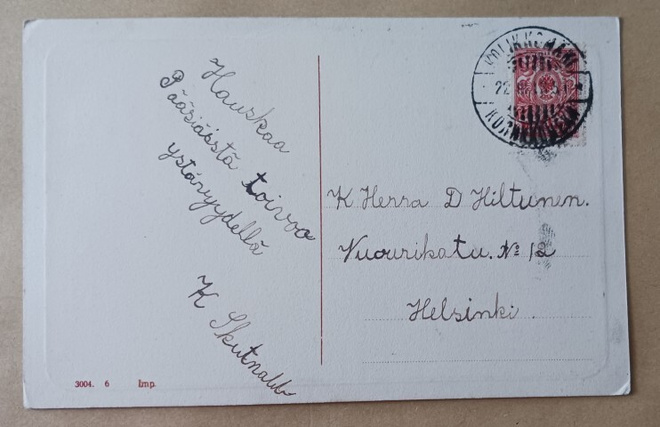 Hauskaa
Pääsiäistä toivoo
ystävyydellä
K Skutnabb
K Herra D Hiltunen.
Vuourikatu. № 12
Helsinki.
3004. 6 Imp.